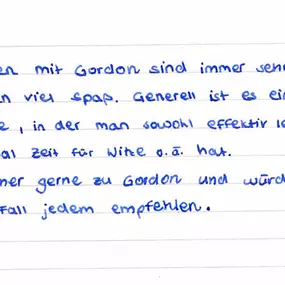 en mit Gordon sind immer seh
n viel Spaß. Generell ist es ei
e, in der man sowohl effektiv l
al Zeit für Witze o.ä. hat.
mer gerne zu Gordon und würd
Fall jedem empfehlen.